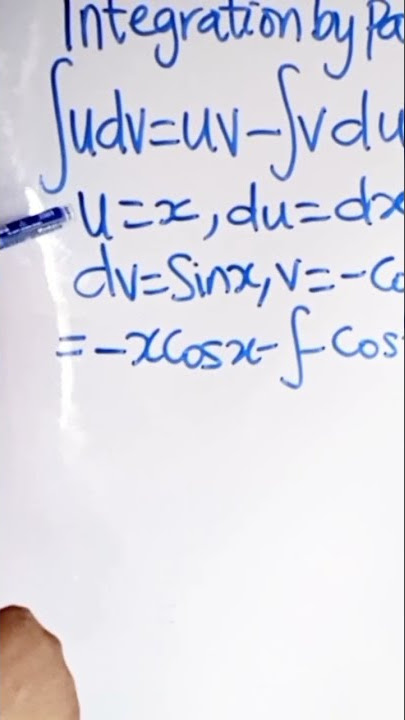 Integration by Pa
∫udv=uv-∫vdu
u=x, du=dx
dv=Sinx, v=-Co
=-xCosx-∫-Cos